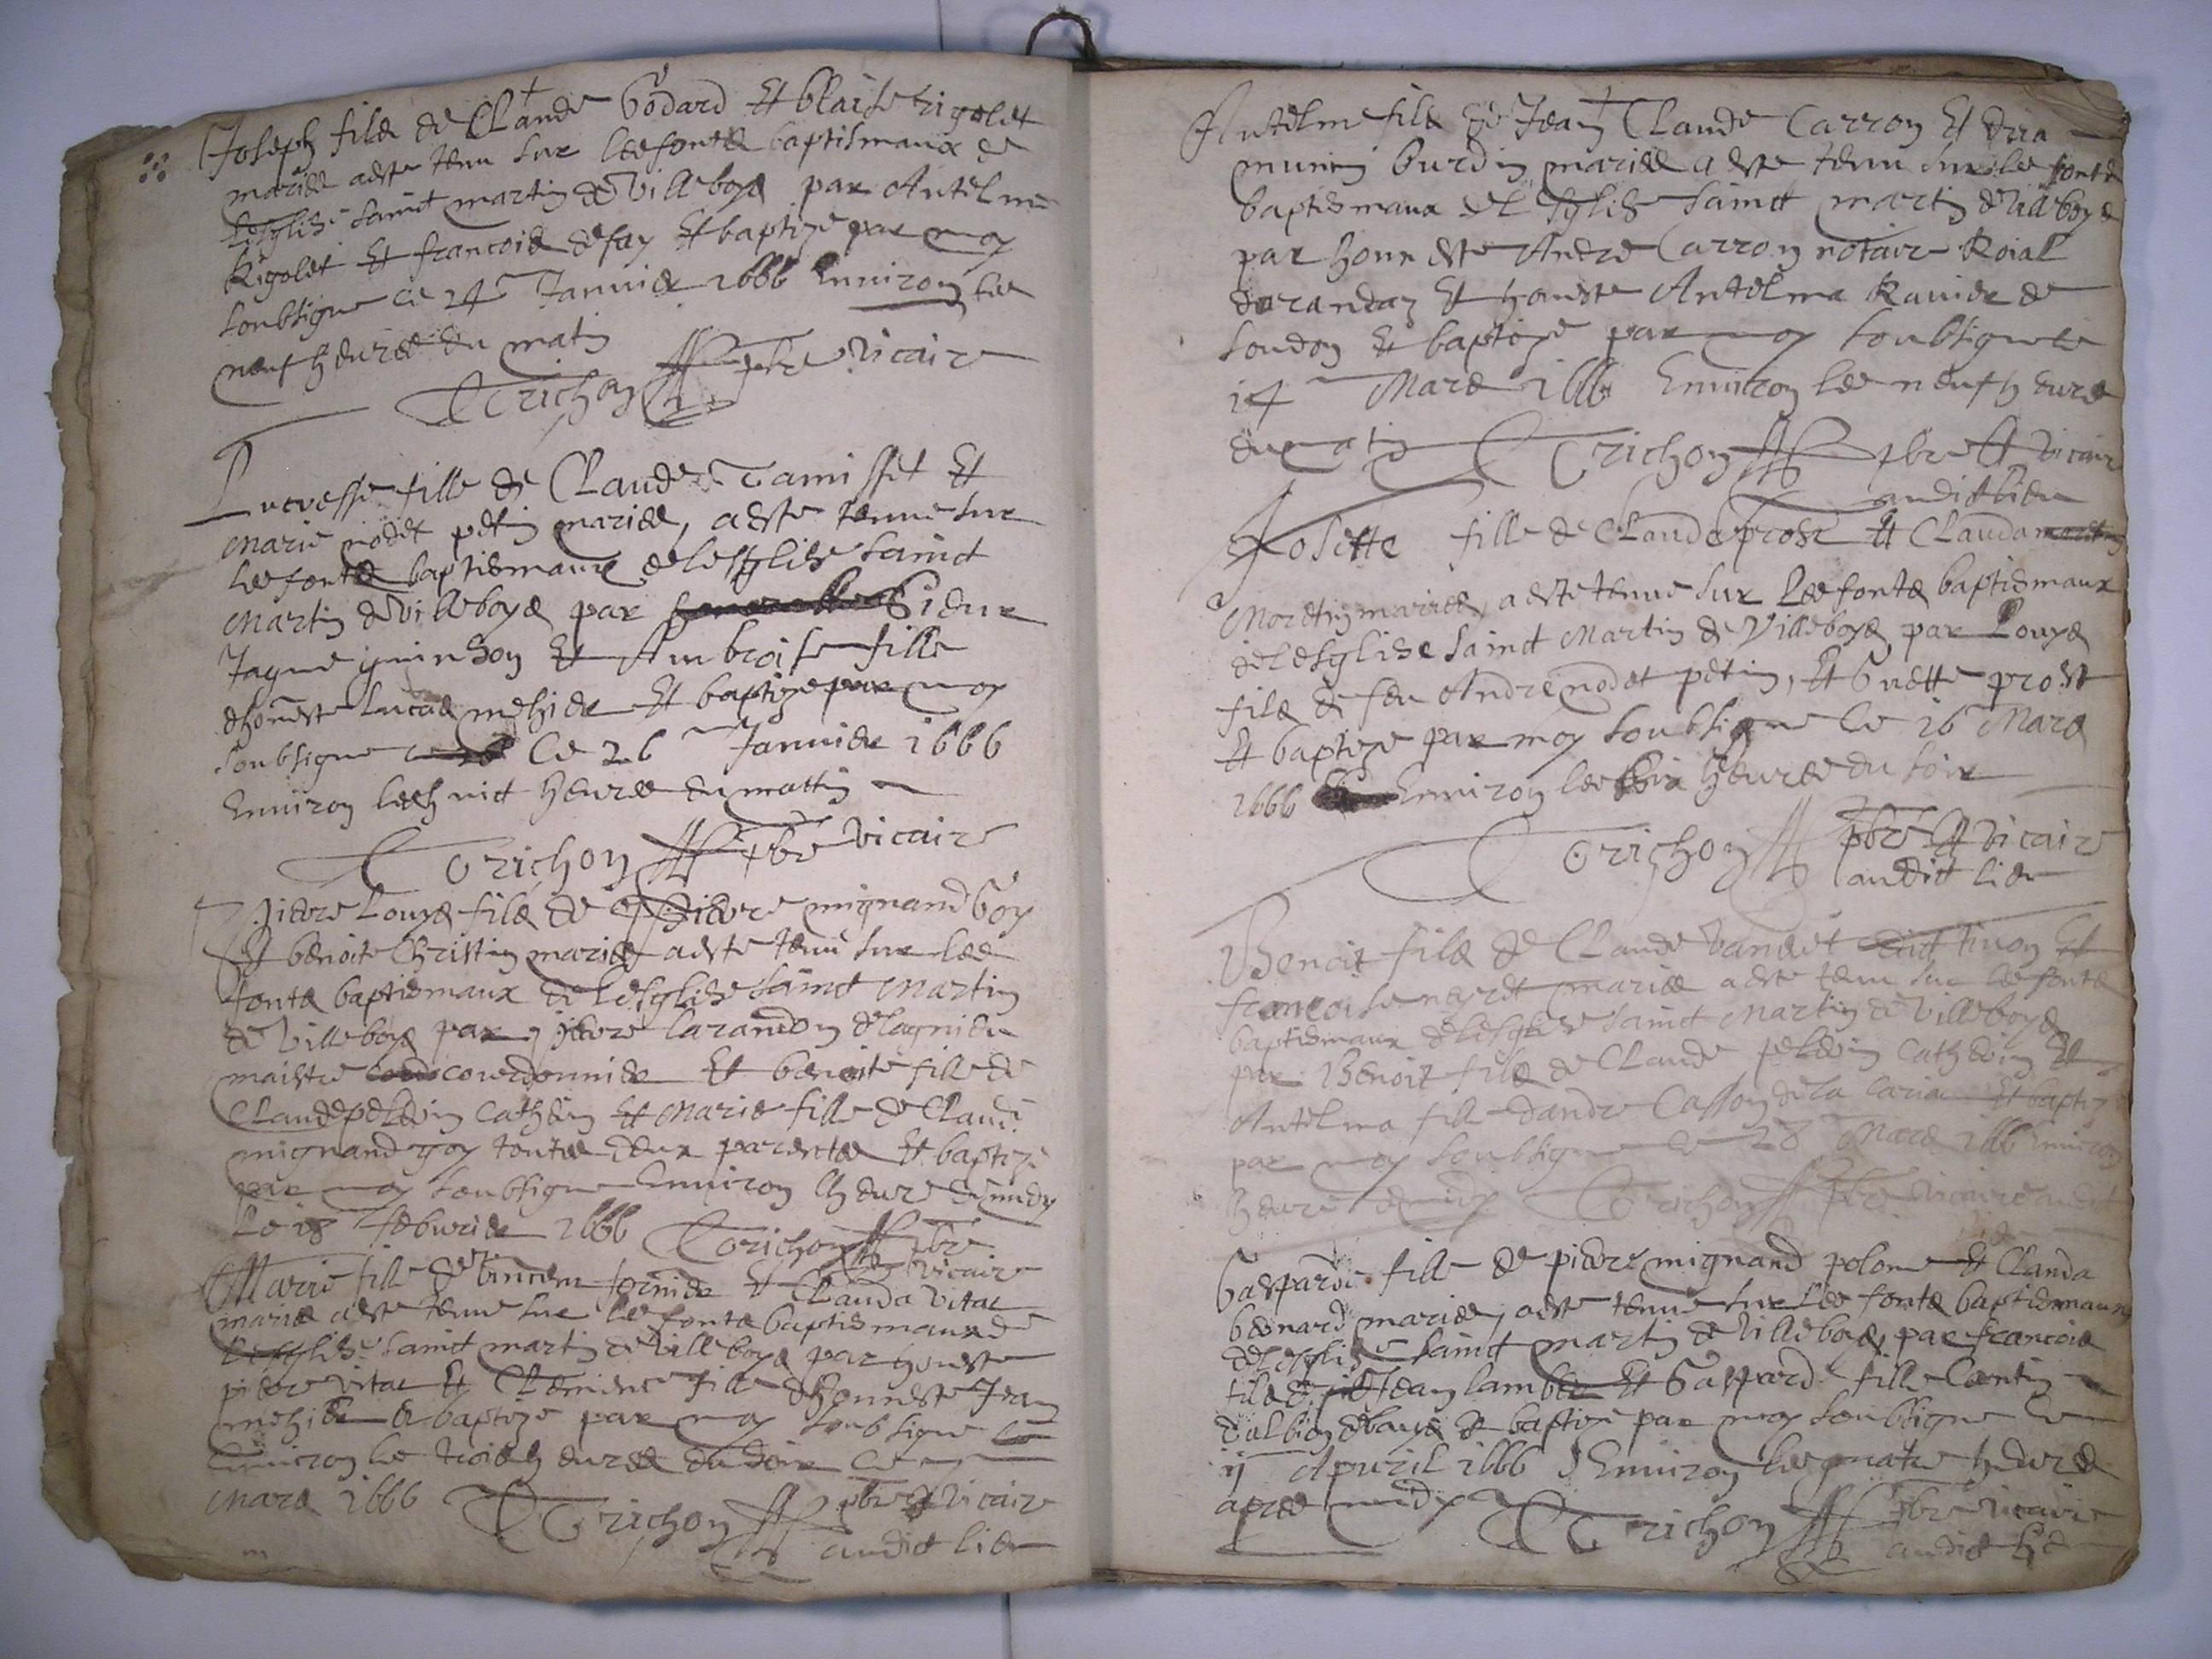 Joseph filz de Claude Godard Et blaise rigolet
mariez a este tenu sur les fontz baptismaux de
lesglise sainct martin de Villeboys par Antelme
Rigolet Et francois defay Et baptize par moy
soubsigne ce 24 Janvier 1666 Environ les
neuf heures du matin
Trichon pbre vicaire
Lucresse fille de Claude Tamisset Et
Marie nodet petin mariez, a este tenue sur
les fontz baptismaux de lesglise sainct
Martin de villeboys par Sieur
Jaque guinson Et Ambroise fille
dhoneste Lucas mehier Et baptize par moy
soubsigne ce 26 Janvier 1666
Environ les huict heures du mattin
Trichon pbre vicaire
Pierre Louys filz de Pierre mignand Goy
Et benoite Christin mariez a este tenu sur les
fontz baptismaux de lesglise sainct Martin
de Villeboys par pierre larandon de lagnieu
maistre courdonnier Et benoite fille de
Claude peldin Cathein Et Marie fille de Claude
mignand goy toutes deux parentes Et baptize
par moy soubsigne Environ lheure de midy
Le 18 febvrier 1666 Trichon pbre
vicaire
Marie fille de Vincent fornier Et Clauda vital
mariez a este tenue sur les fontz baptismaux de
lesglise sainct martin de villeboys par honeste
pierre vital Et Clemence fille dhonneste Jean
mehier Et baptize par moy soubsigne
Environ les trois heures du soir ce
Mars 1666 Trichon pbre Et vicaire
audict lieu
Antelme filz de Jean Claude Carron Et
burdin mariez a este tenu sur les fontz
baptismaux de lesglise sainct martin de villeboys
par honneste Andre Carron notaire Roial
darandaz Et honeste Antelma Ravier de
soudon Et baptize par moy soubsigne ce
14 Mars 1666 Environ les neuf heures
du matin Trichon pbre Et vicaire
audict lieu
Josette fille de Claude prost Et Clauda
Moretin mariez, a este tenue sur les fontz baptismaux
de lesglise sainct Martin de Villeboys par Louys
filz de feu Andre nodet petin, Et Guette prost
Et baptize par moy soubsigne ce 16 Mars
1666 Environ les six heures du soir
Trichon pbre Et vicaire
audict lieu
Benoit filz de Claude vanet dict Et
francoise neyret mariez a este tenu sur les fontz
baptismaux de lesglise sainct Martin de Villeboys
par Benoit filz de Claude peldin Cathein Et
Antelma fille dandre Casson de la Et baptize
par moy soubsigne ce 28 Mars 1666 Environ
lheure de midy Trichon pbre vicaire audict
lieu
Gasparde fille de pierre mignand polome Et Clauda
besnard mariez, a este tenue sur les fontz baptismaux
de lesglise sainct martin de Villeboys par francois
filz de Jean lambert Et Gasparde fille
Et baptize par moy soubsigne ce
ij Apvril 1666 Environ les quatre heures
apres midy Trichon pbre vicaire
audict lieu